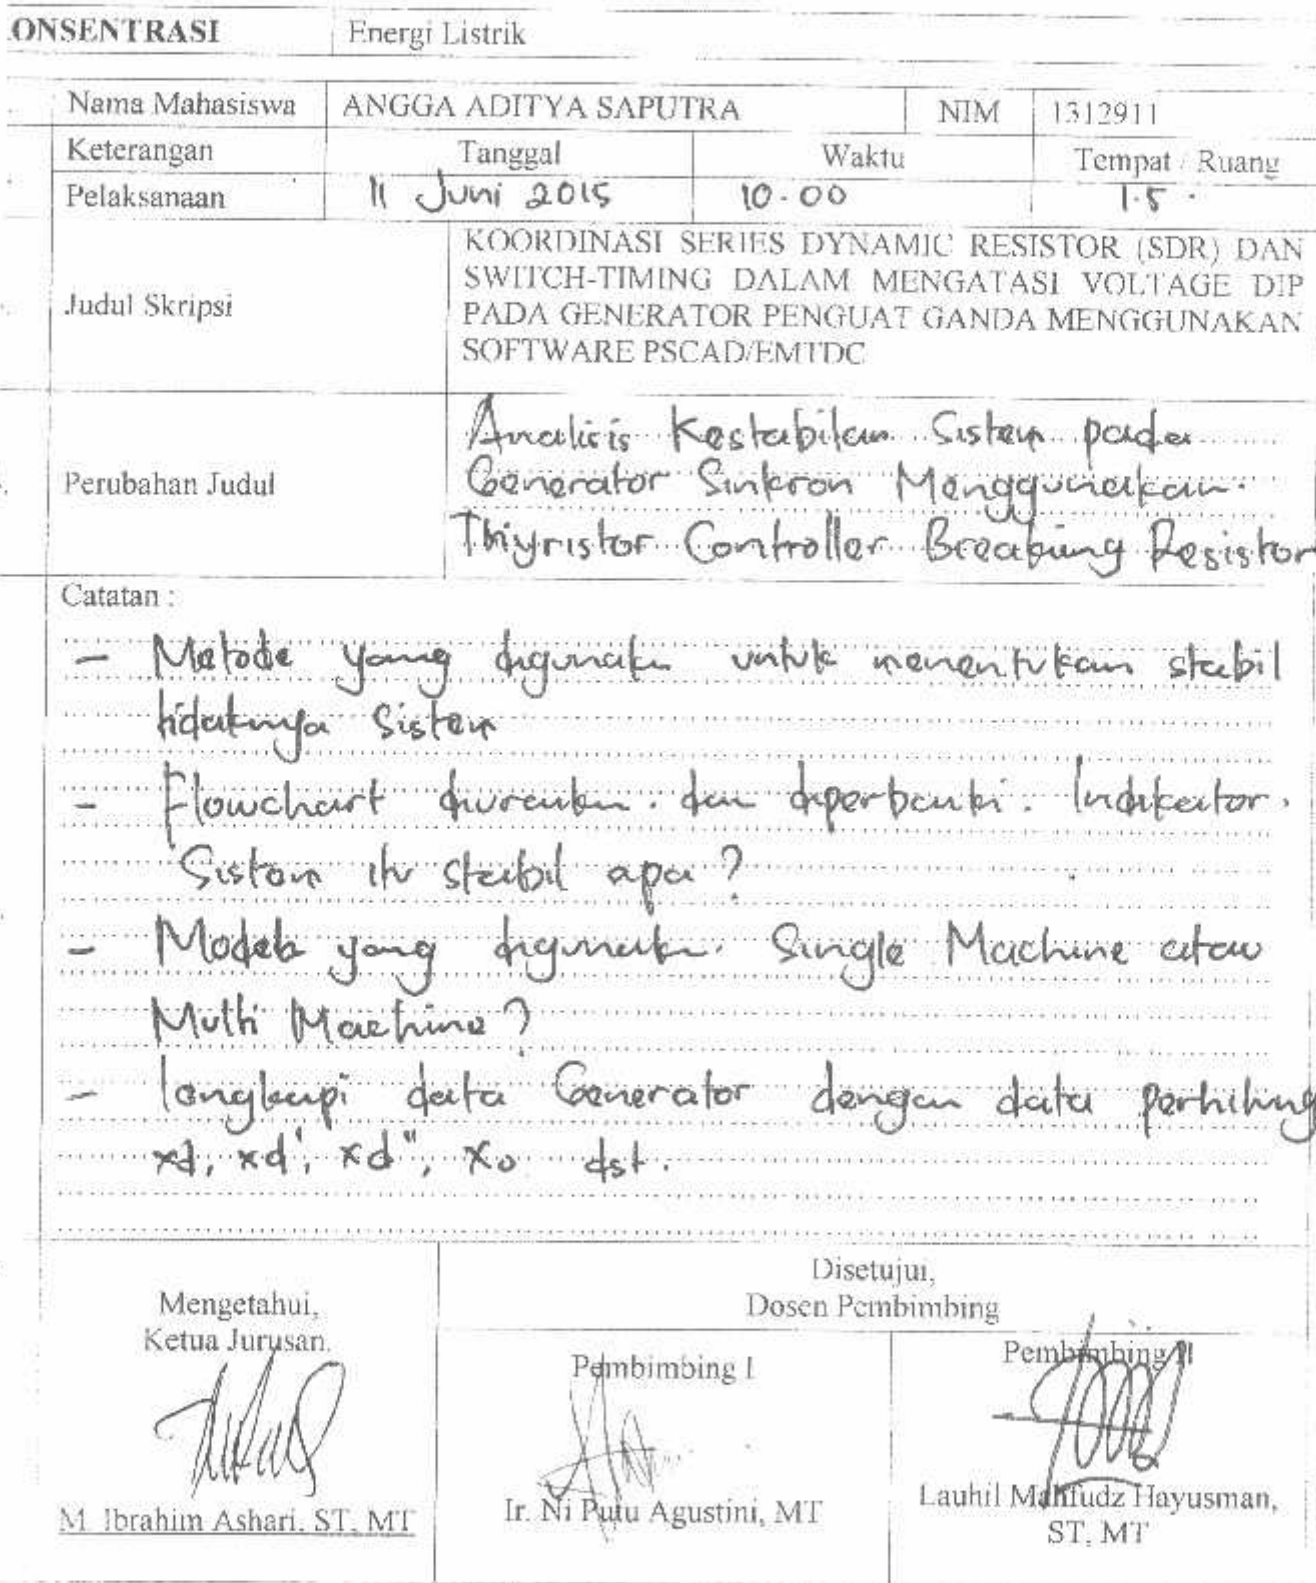 ONSENTRASI Energi Listrik
Nama Mahasiswa ANGGA ADITYA SAPUTRA NIM 1312911
Keterangan Tanggal Waktu Tempat / Ruang
Pelaksanaan 11 Juni 2015 10.00 1.5
Judul Skripsi
KOORDINASI SERIES DYNAMIC RESISTOR (SDR) DAN
SWITCH-TIMING DALAM MENGATASI VOLTAGE DIP
PADA GENERATOR PENGUAT GANDA MENGGUNAKAN
SOFTWARE PSCAD/EMTDC
Perubahan Judul
Analisis Kestabilan Sistem pada
Generator Sinkron Menggunakan
Thiyristor Controller Breaking Resistor
Catatan :
- Metode yang digunakan untuk menentukan stabil
tidaknya Sistem
- Flowchart diuraikan dan diperbaiki. Indikator
Sistem itu stabil apa?
- Model yang digunakan Single Machine atau
Multi Machine?
- lengkapi data Generator dengan data perhitung
xd, xd', xd", xo dst.
Mengetahui,
Ketua Jurusan,
M. Ibrahim Ashari, ST, MT
Disetujui,
Dosen Pembimbing
Pembimbing I
Ir. Ni Putu Agustini, MT
Pembimbing II
Lauhil Mahfudz Hayusman,
ST, MT